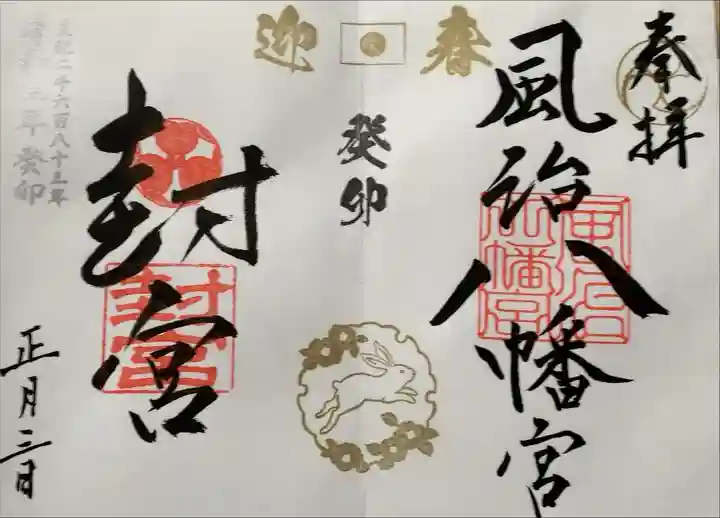 奉拝
風治八幡宮
風治
八幡宮
迎春
癸卯
封宮
封宮
皇紀二千六百八十三年
令和五年癸卯
正月三日